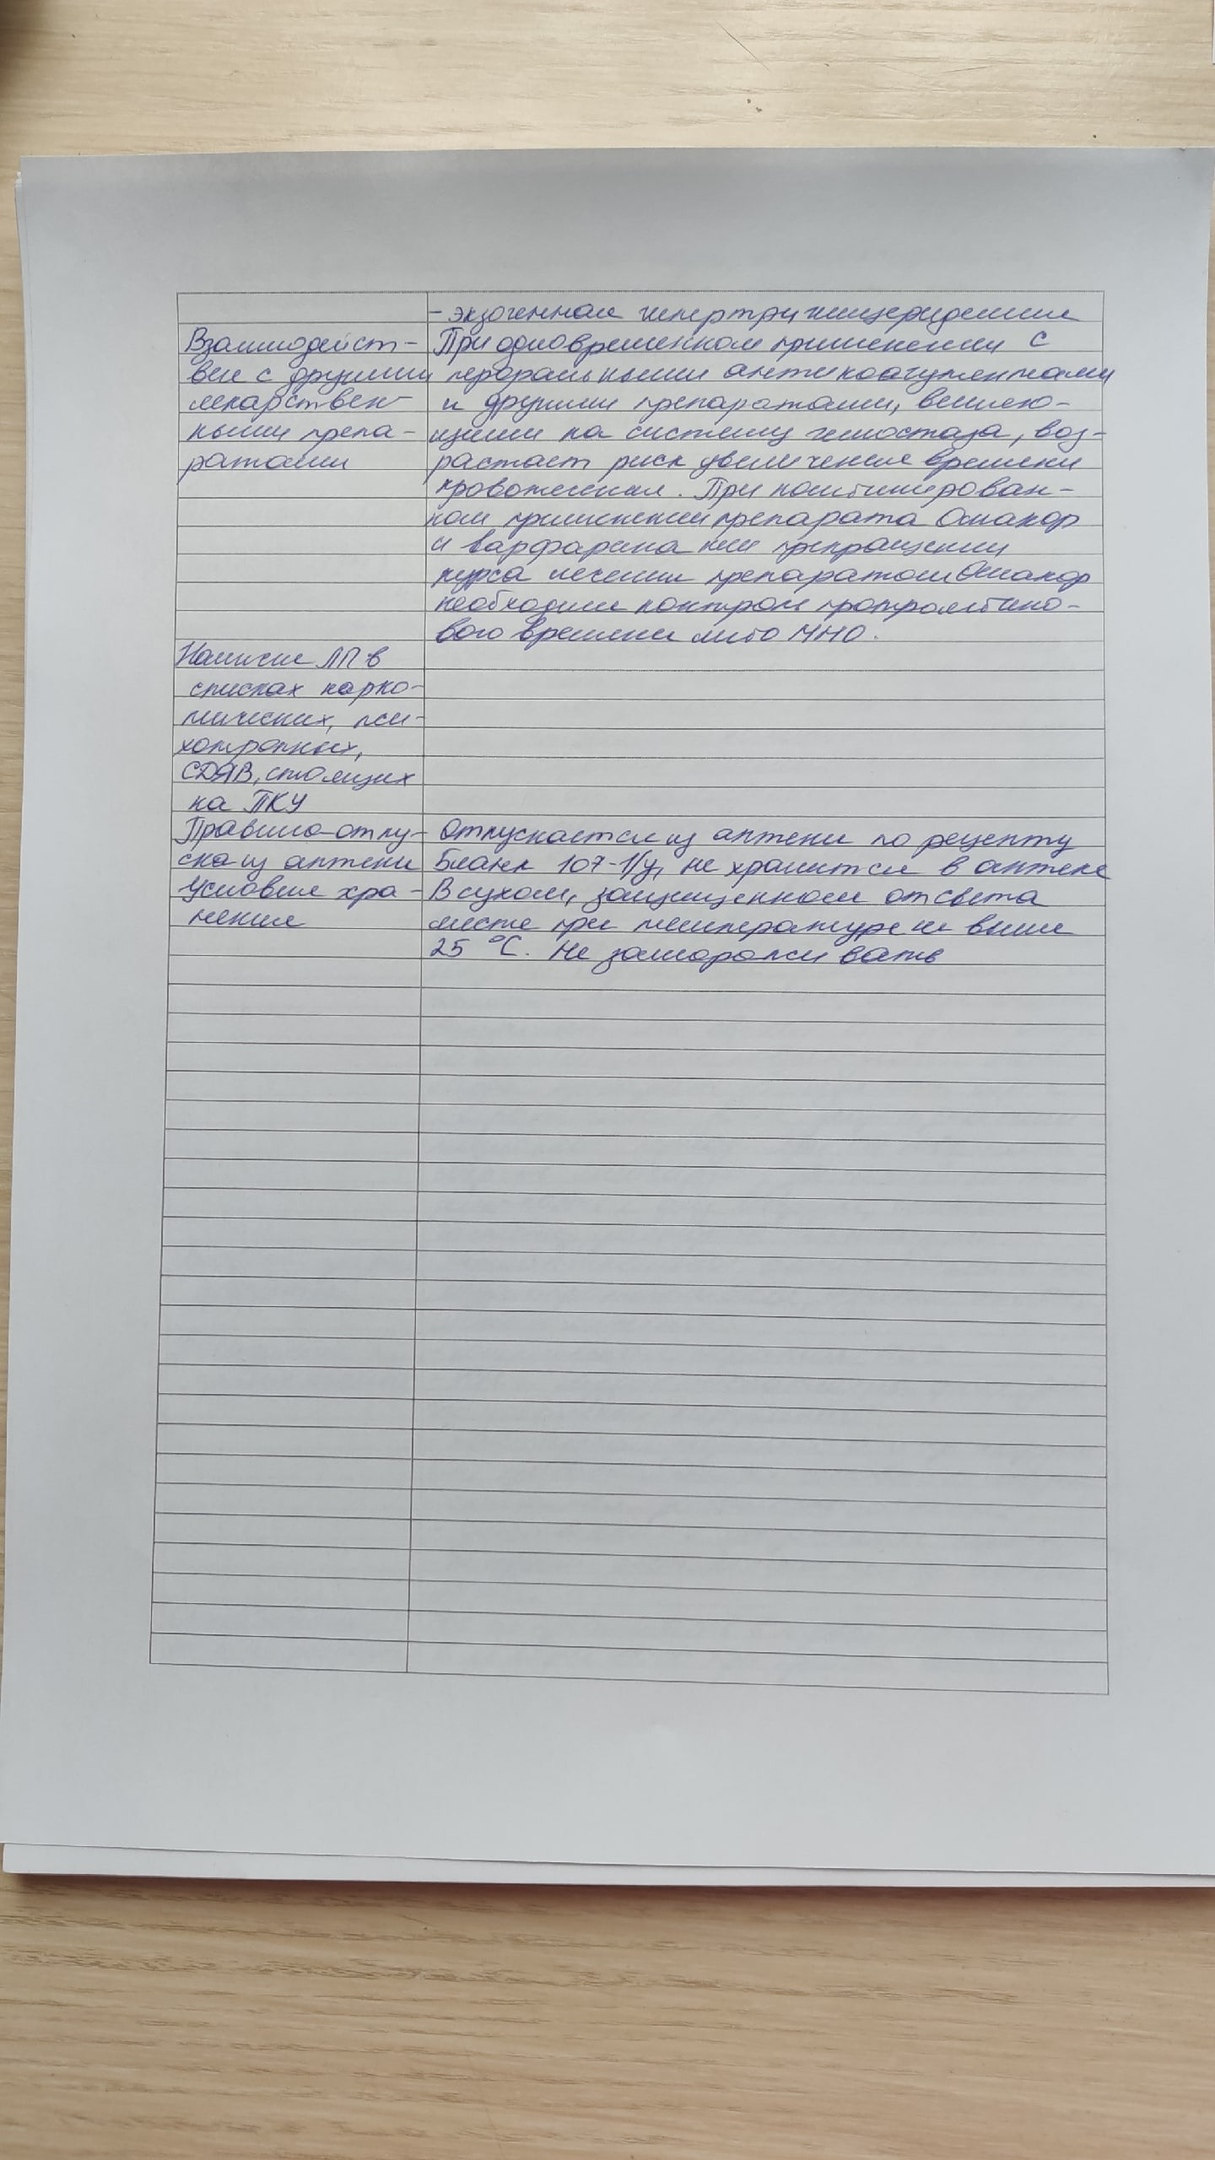 - экзогенная гипертриглицеридемия
Взаимодейст-
вие с другими
лекарствен-
ными препа-
ратами
При одновременном применении с
пероральными антикоагулянтами
и другими препаратами, влияю-
щими на систему гемостаза, воз-
растает риск увеличения времени
кровотечения. При комбинирован-
ном применении препарата Омакор
и варфарина или прекращении
курса лечения препаратом Омакор
необходим контроль протромбино-
вого времени либо МНО.
Наличие ЛП в
списках нарко-
тических, пси-
хотропных,
СДЯВ, стоящих
на ПКУ
Правила отпу-
ска из аптеки
Отпускается из аптеки по рецепту
Бланк 107-1/у, не хранится в аптеке
Условия хра-
нения
В сухом, защищенном от света
месте при температуре не выше
25 °С. Не замораживать